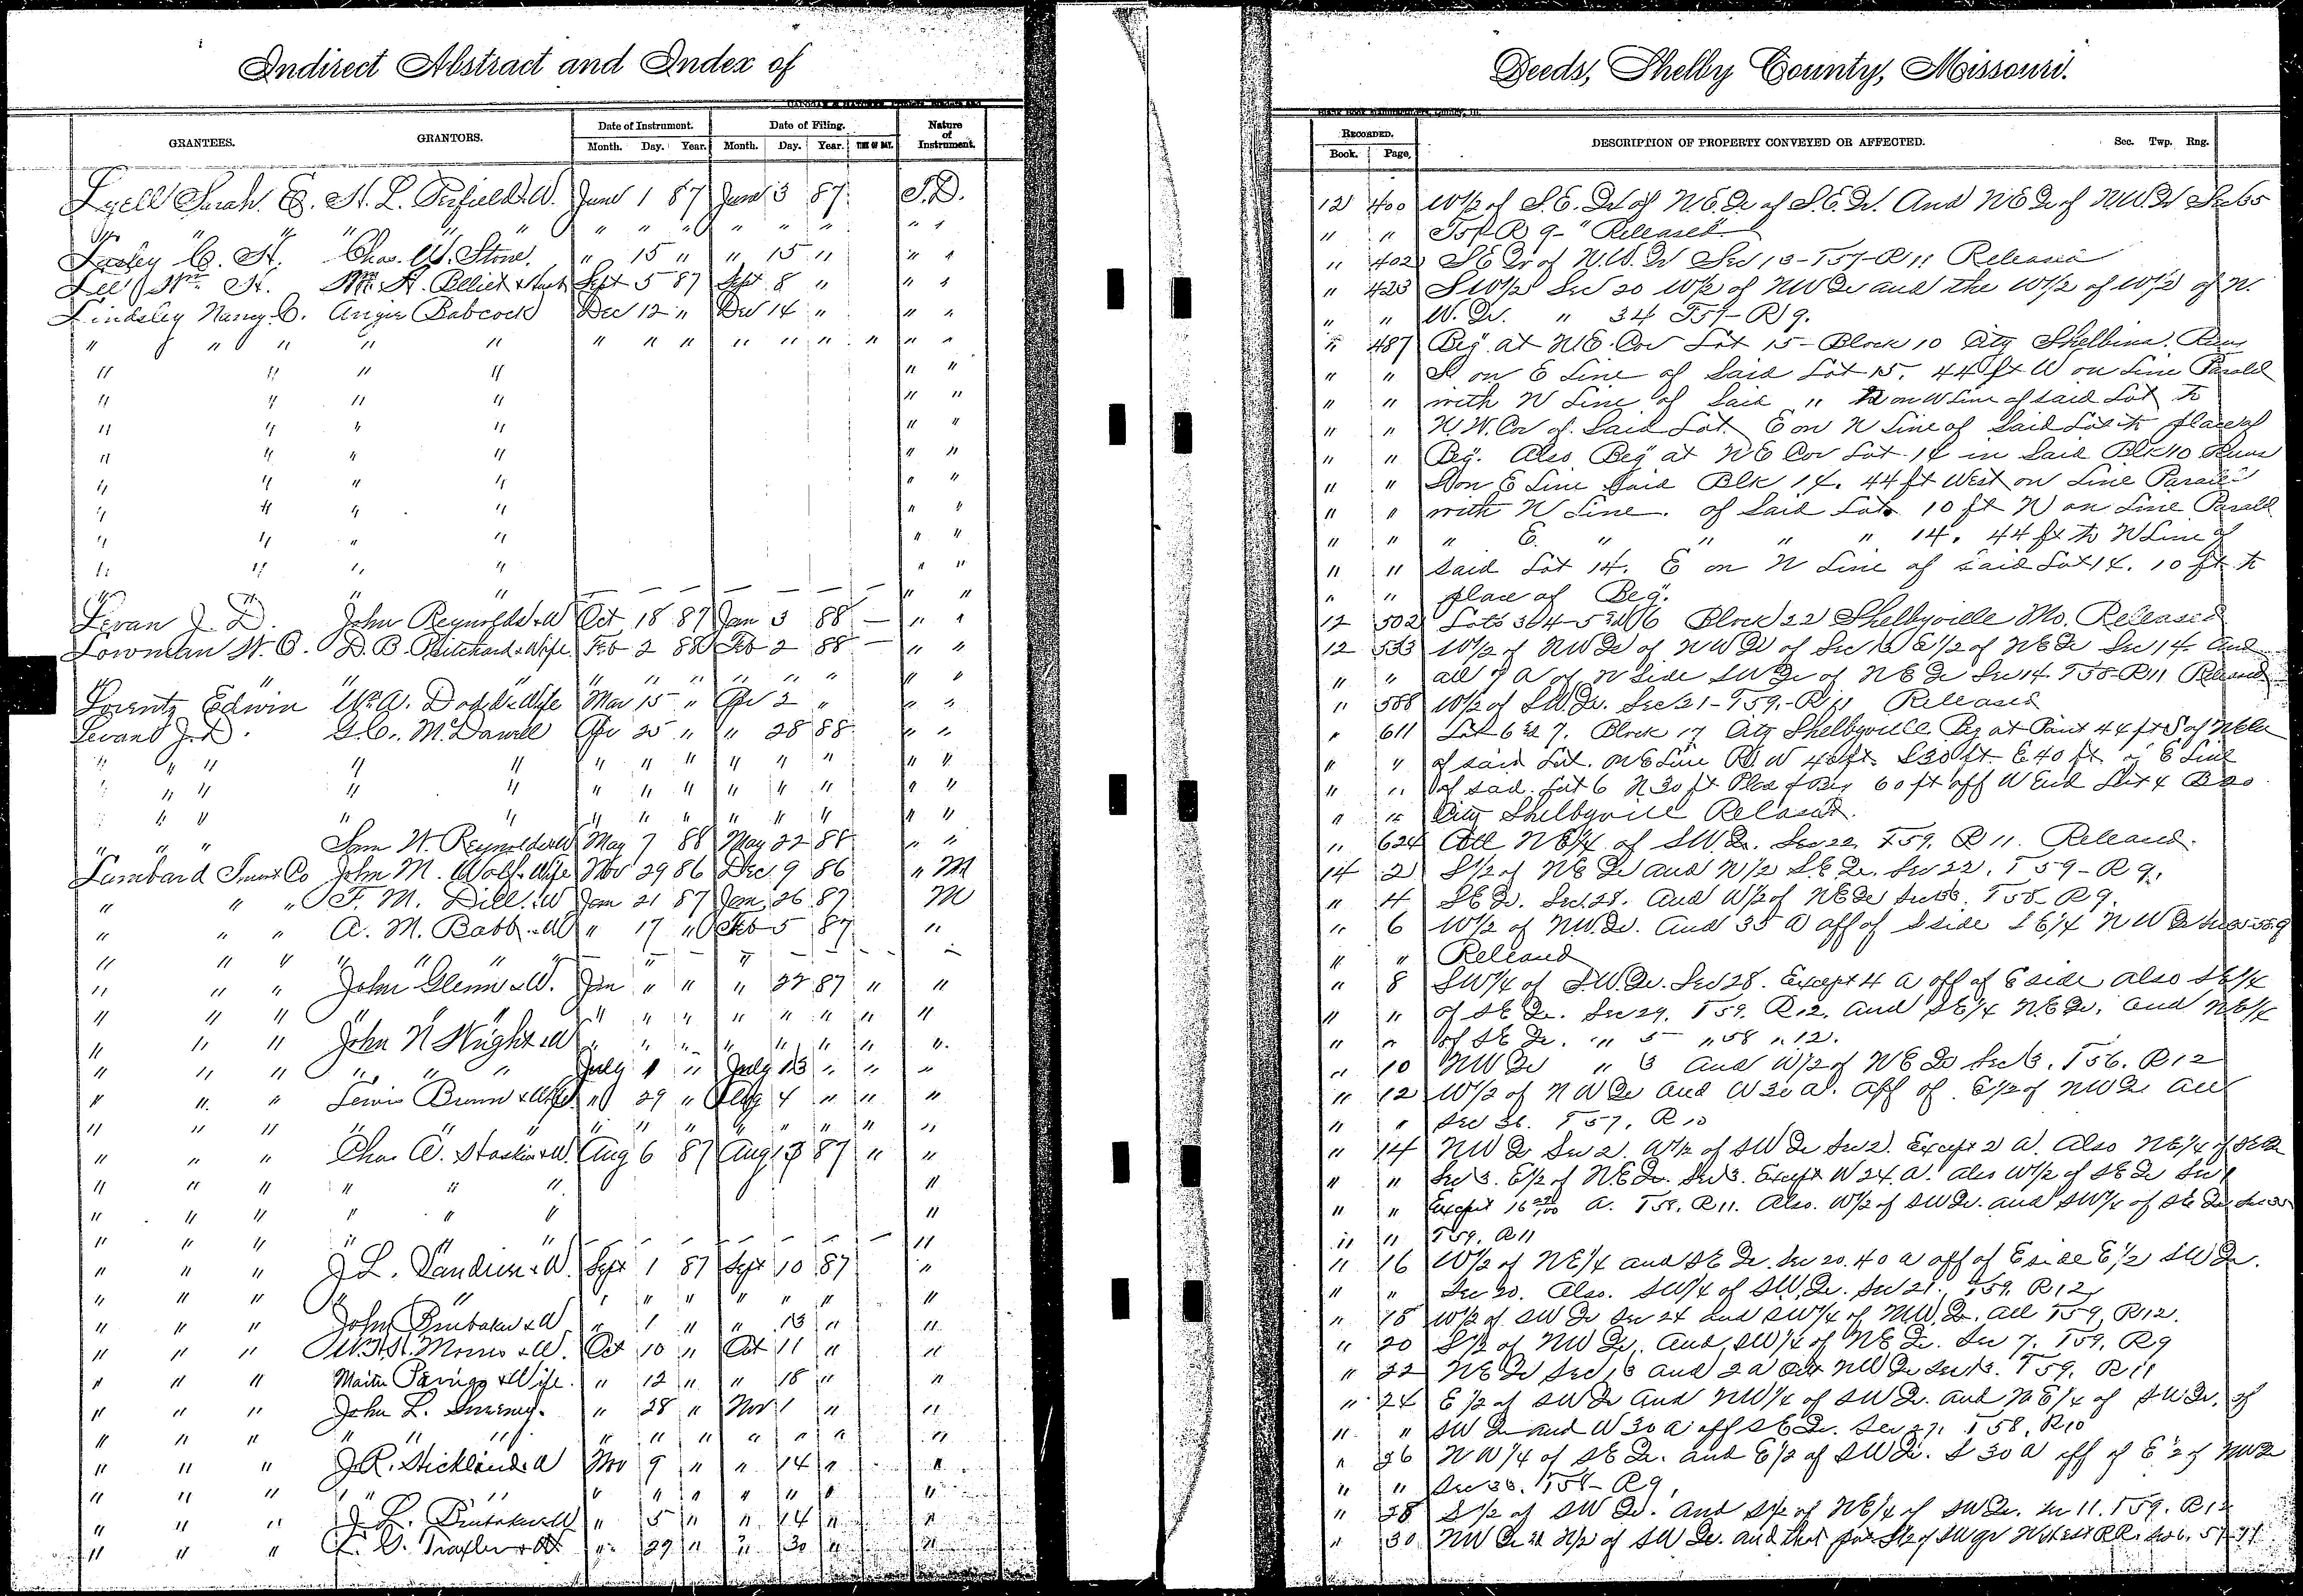 Indirect Abstract and Index of
GRANTEES. GRANTORS. Date of Instrument. Date of Filing. Nature of Instrument.
Month. Day. Year. Month. Day. Year. TIME OF DAY.
Lyell Sarah. E. H. L. &W. June 1 87 June 3 87 T.D.
" " " " " " " " " " " "
C. H. Chas. W. Stone. " 15 " " 15 " " "
Lee Wm H. Wm H. Sept 5 87 Sept 8 " " "
Lindsley Nancy C. Angie Babcock Dec 12 " Dec 14 " " "
" " " " " " " " " " " " " "
" " " " " "
" " " " " "
" " " " " "
" " " " " "
" " " " " "
" " " " " "
" " " " " "
" " " " " "
" " " " " "
Levan J. D. John Reynolds &W Oct 18 87 Jan 3 88 — " "
Lowman W. C. D. B. Pritchard & Wife Feb 2 88 Feb 2 88 — " "
" " " " " " " " " "
Lorentz Edwin Wm A. Dodd & Wife Mar 15 " Apr 2 " " "
Levans J. D. G. C. McDaniell Apr 25 " " 28 88 " "
" " " " " " " " " " " " "
" " " " " " " " " " " " "
" " " " " " " " " " " " "
" " " Sam W. Reynolds &W May 7 88 May 22 88 " "
Lumbard Invst Co John M. Wolf & Wife Nov 29 86 Dec 9 86 " M
" " " F. M. Dill &W Jan 21 87 Jan 26 87 M
" " " A. M. Babb &W " 17 " Feb 5 87 "
" " " " " " — " — —
" " " John Glenn &W. Jan " " " 22 87 " "
" " " " " " " " " " " " "
" " " John N Wright &W " " " " " " " "
" " " " " " July 1 " July 13 " " "
" " " Lewis & Wife " 29 " Aug 4 " " "
" " " " " " " " " " " " "
" " " Chas A. &W. Aug 6 87 Aug 13 87 " "
" " " " " " "
" " " " " " "
" " " " " — — — — — — — "
" " " J L. &W. Sept 1 87 Sept 10 87 "
" " " " " " " " " " " "
" " " John Brubaker &W " 1 " " 13 " "
" " " W. H. H. Morris &W. Oct 10 " Oct 11 " "
" " " & Wife. " 12 " " 18 " "
" " " John L. " 28 " Nov 1 " "
" " " " " " " " " " " " "
" " " J R. Strickland &W Nov 9 " " 14 " "
" " " " " " " " " " " "
" " " J L. Brubaker &W " 5 " " 14 " "
" " " &W " 29 " " 30 " "
Deeds, Shelby County, Missouri.
RECORDED. DESCRIPTION OF PROPERTY CONVEYED OR AFFECTED. Sec. Twp. Rng.
Book. Page,
12 400 W½ of S.E. Qr of N.E. Qr of S.E. Qr. And N E Qr of N.W. Qr Sec 35
" " T57 R 9 - " Released
" 402 S E Qr of N.W. Qr Sec 13-T57-R11 Released
" 423 S W½ Sec 20 W½ of NW Qr and the W½ of W½ of N.
" " W. Qr. " 34 T57- R 9.
" 487 Beg. at N.E. Cor Lot 15 - Block 10 City Shelbina. Runs
" " S on E Line of Said Lot 15. 44 ft W on Line Parallel
" " with N Line of Said " N on W Line of said Lot to
" " N.W. Cor of Said Lot. E on N Line of Said Lot to place of
" " Beg. Also Beg at N E Cor Lot 14 in Said Blk 10 Runs
" " S on E Line Said Blk 14. 44 ft West on Line Parallel
" " with N Line. of Said Lot 10 ft N on Line Parallel
" " " E. " " " " 14. 44 ft to N Line of
" " Said Lot 14. E on N Line of said Lot 14. 10 ft to
" " place of Beg.
12 502 Lots 3 & 4-5 & 6 Block 22 Shelbyville Mo. Released
12 533 W½ of NW Qr of NW Qr of Sec 13 E½ of N E Qr Sec 14 and
" " all 7 A of N Side SW Qr of N E Qr Sec 14. T58-R11 Released
" 588 W½ of S.W. Qr. Sec 21-T59.-R11 Released
" 611 Lot 6 & 7. Block 17 City Shelbyville Beg at Point 44 ft S of NE Cor
" " of said Lot. on E Line W 40 ft. S 30 ft- E 40 ft. E Line
" " of said Lot 6 N 30 ft Place of Beg 60 ft off W End Lot 4 B 20
" " City Shelbyville Released.
" 624 All N E¼ of S.W. Qr. Sec 22. T59. R 11. Released.
14 2 S½ of N E Qr and N½ S.E. Qr. Sec 22. T 59 - R 9.
" 4 S E Qr. Sec. 28. And W½ of N E Qr Sec 33. T58- R 9.
" 6 W½ of N.W. Qr. And 35 A off of S side S E¼ N W Qr Sec 35-58-9
" " Released
" 8 SW¼ of S.W. Qr. Sec 28. Except 4 A off of E side also S E¼
" " of S E Qr. Sec 29. T59. R12. and S E¼ N.E. Qr. and N E¼
" " of S E Qr. " 5 " 58 " 12.
" 10 NW Qr " 3 and W½ of N E Qr Sec 3. T56. R12
" 12 W½ of N W Qr and W 30 A. off of E½ of N W Qr all
" " Sec 36. T57, R10
" 14 NW Qr Sec 2. W½ of SW Qr Sec 2. Except 2 A. Also NE¼ of S E Qr
" " Sec 3. E½ of N.E. Qr. Sec 3. Except W 24. A. also W½ of S E Qr Sec
" " Except 16 A. T58. R11. Also. W½ of SW Qr. and SW¼ of S E Qr Sec 35
" " T59. R11
" 16 W½ of N E¼ and S E Qr. Sec 20. 40 A off of E side E½ SW Qr.
" " Sec 20. Also. SW¼ of S.W. Qr. Sec 21. T59. R12
" 18 W½ of SW Qr Sec 24 and SW¼ of N.W. Qr. all T59, R12.
" 20 S½ of NW Qr. And SW¼ of N E Qr. Sec 7. T59. R9
" 22 N E Qr Sec 13 and 2 A NW Qr Sec 13. T59. R11
" 24 E ½ of SW Qr and NW¼ of SW Qr. and N E¼ of S.W. Qr. of
" " SW Qr and W 30 A off S E Qr. Sec 27. T58. R10
" 26 N W¼ of S E Qr. and E½ of SW Qr. S 30 A off of E ½ of NW Qr
" " Sec 33. T58- R9,
" 28 S ½ of SW Qr. and S½ of N E¼ of SW Qr. Sec 11. T59. R12
" 30 NW Qr & N½ of SW Qr. and that part S½ of SW qr